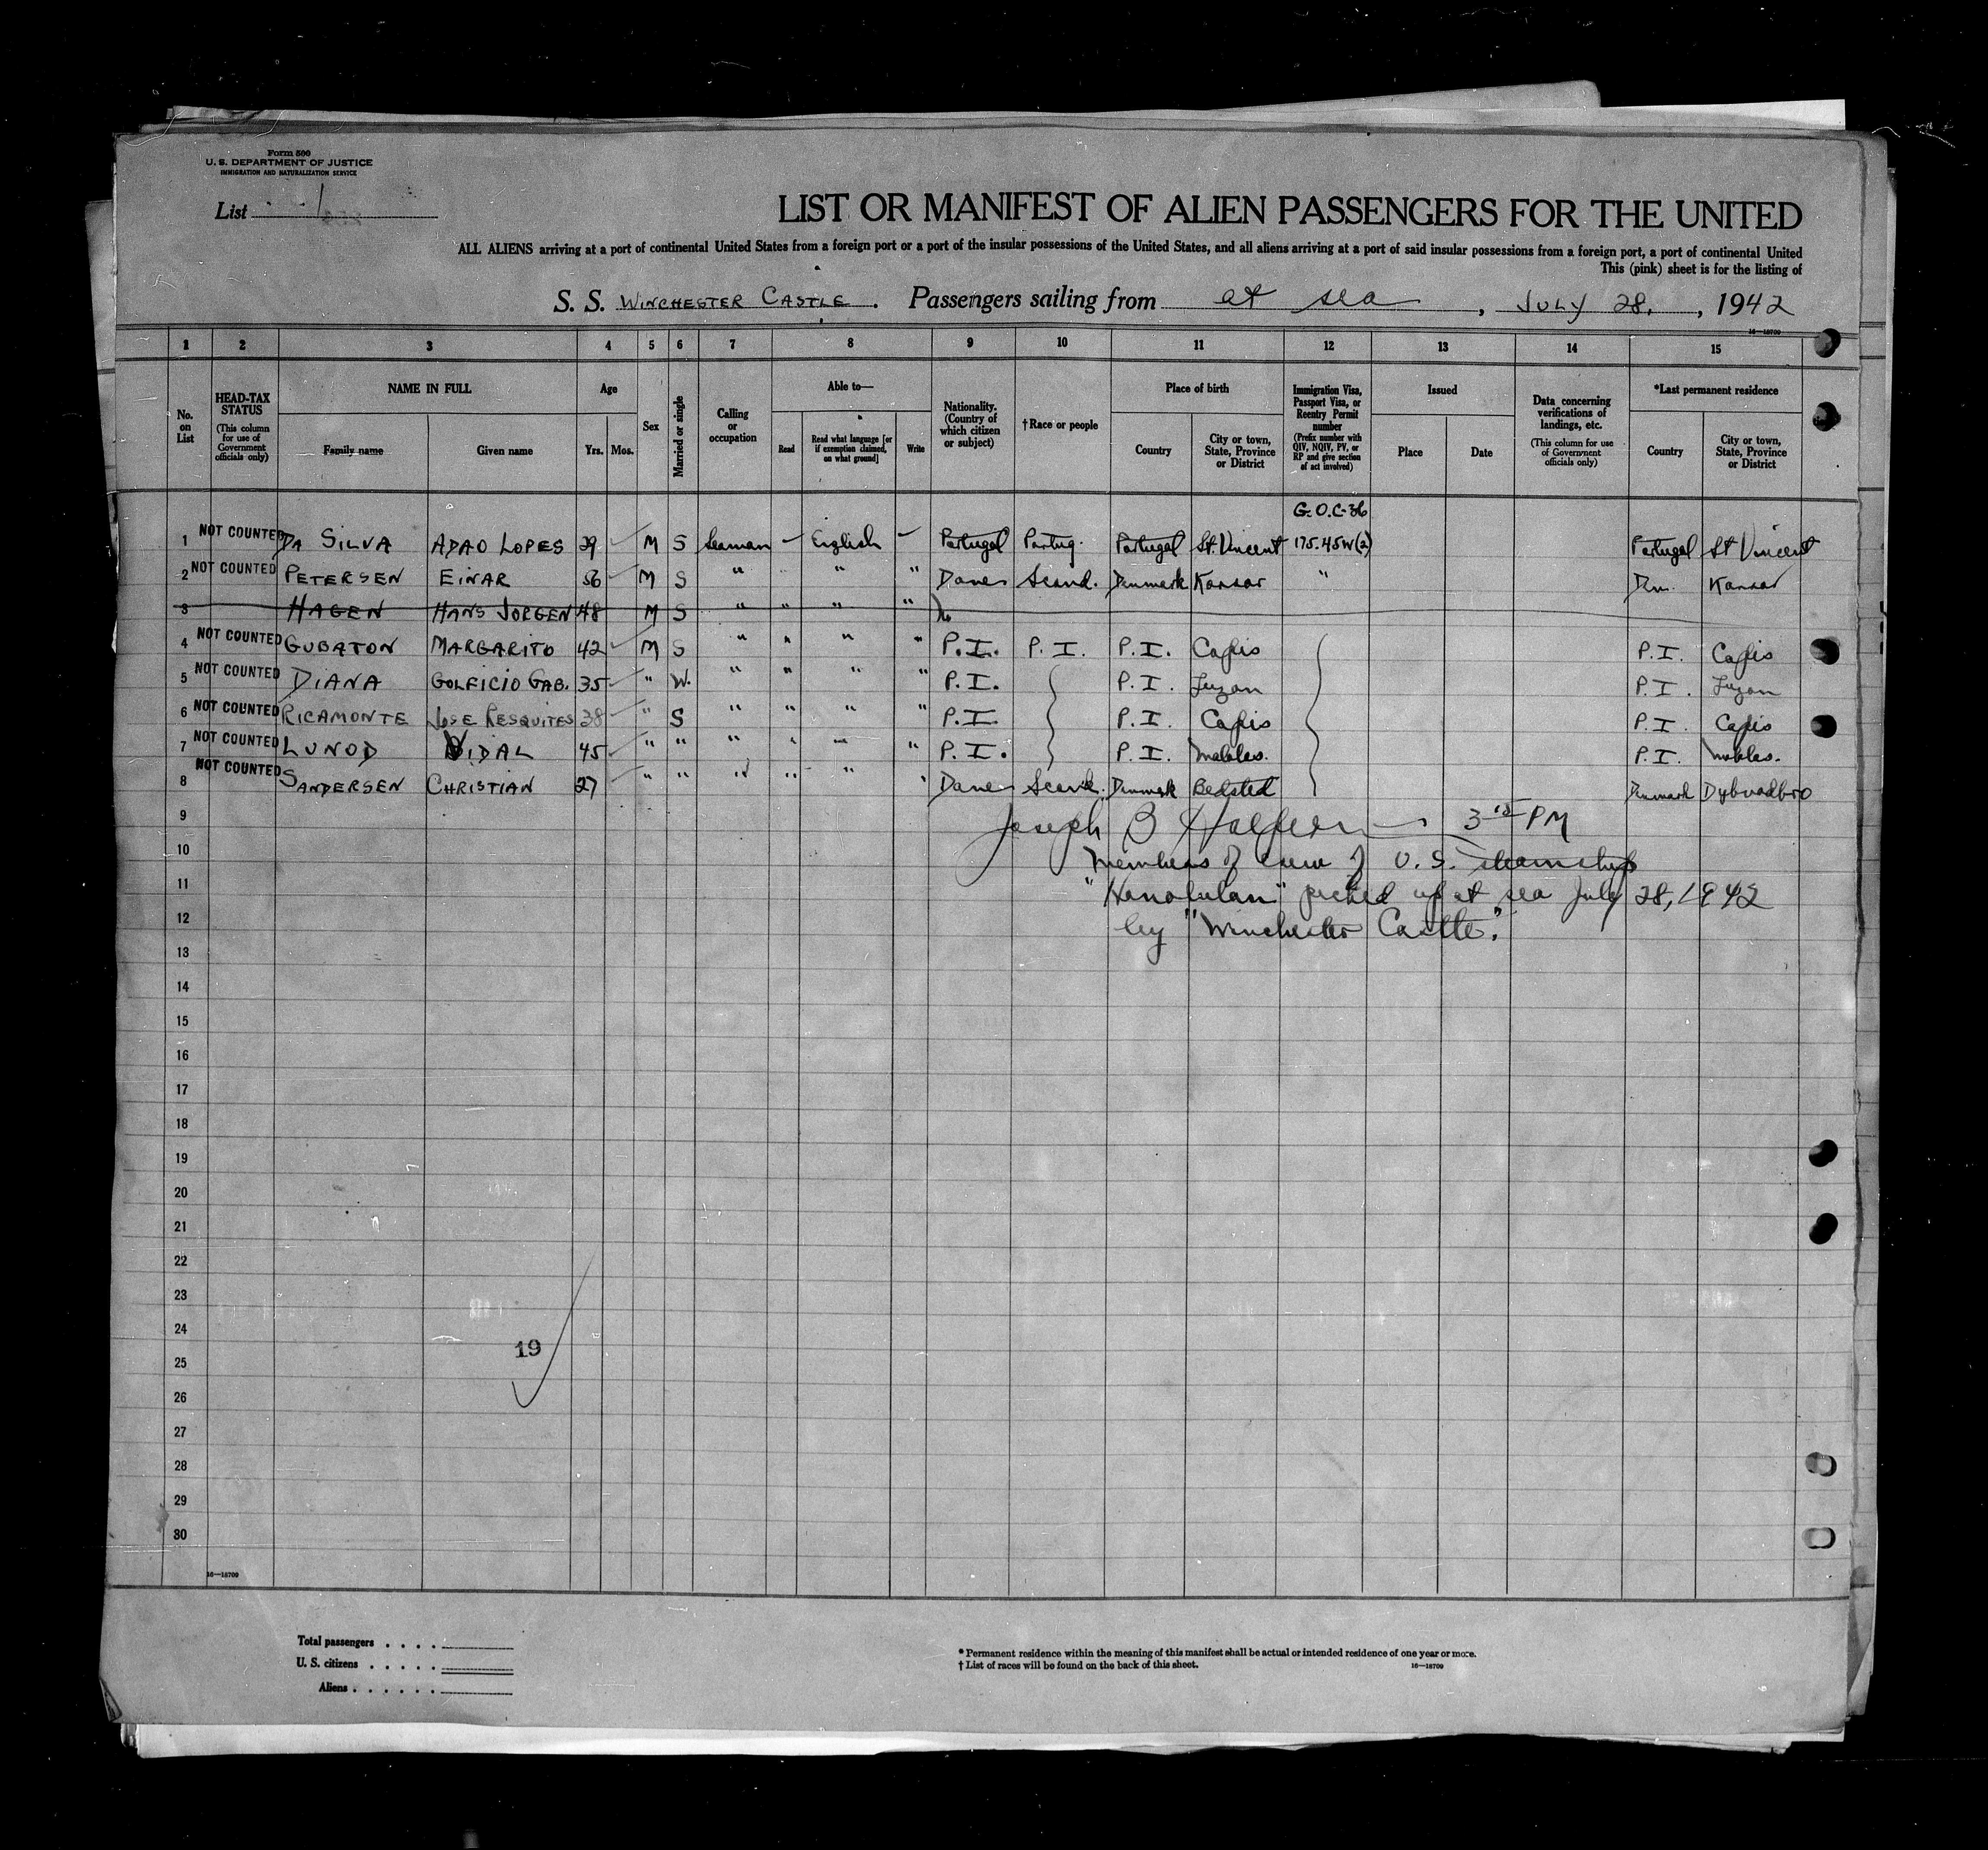 Form 500
U. S. DEPARTMENT OF JUSTICE
IMMIGRATION AND NATURALIZATION SERVICE
List 1
LIST OR MANIFEST OF ALIEN PASSENGERS FOR THE UNITED
ALL ALIENS arriving at a port of continental United States from a foreign port or a port of the insular possessions of the United States, and all aliens arriving at a port of said insular possessions from a foreign port, a port of continental United
This (pink) sheet is for the listing of
S. S. WINCHESTER CASTLE. Passengers sailing from at sea, JULY 28., 1942
16—18709
1 2 3 4 5 6 7 8 9 10 11 12 13 14 15
No. on List
HEAD-TAX STATUS (This column for use of Government officials only)
NAME IN FULL Family name Given name
Age Yrs. Mos.
Sex
Married or single
Calling or occupation
Able to— Read Read what language [or if exemption claimed, on what ground] Write
Nationality. (Country of which citizen or subject)
†Race or people
Place of birth Country City or town, State, Province or District
Immigration Visa, Passport Visa, or Reentry Permit number (Prefix number with QIV, NQIV, PV, or RP and give section of act involved)
Issued Place Date
Data concerning verifications of landings, etc. (This column for use of Government officials only)
*Last permanent residence Country City or town, State, Province or District
G.O.C-36
1 NOT COUNTED DA SILVA ADAO LOPES 29 M S Seaman English Portugal Portug. Portugal St. Vincent 175.45W(2) Portugal St Vincent
2 NOT COUNTED PETERSEN EINAR 56 M S " " " Dane Scand. Denmark Korsor " Den. Korsor
3 HAGEN HANS JORGEN 48 M S " " " "
4 NOT COUNTED GUBATON MARGARITO 42 M S " " " " P.I. P.I. P.I. Capis P.I. Capis
5 NOT COUNTED DIANA GOLFICIO GAB. 35 " W. " " " " P.I. P.I. Luzon P.I. Luzon
6 NOT COUNTED RICAMONTE JOSE RESQUITES 38 " S " " " " P.I. P.I. Capis P.I. Capis
7 NOT COUNTED LUNOD VIDAL 45 " " " " " " P.I. P.I. P.I.
8 NOT COUNTED SANDERSEN CHRISTIAN 27 " " " " " " Dane Scand. Denmark Bedsted Denmark
9 Joseph B 3 15 PM
10 members of crew of U.S. Steamship
11 "Honolulan" picked up at sea July 28, 1942
12 by "Winchester Castle."
13
14
15
16
17
18
19
20
21
22
23
24
19
25
26
27
28
29
30
16—18709
Total passengers . . . .
U. S. citizens . . . . .
Aliens . . . . . .
* Permanent residence within the meaning of this manifest shall be actual or intended residence of one year or more.
† List of races will be found on the back of this sheet. 16—18709